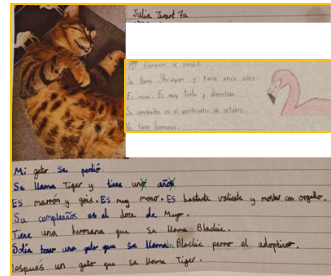 Julia Zuart 7a
El flamenco se perdió.
Se llama Shrimper y tiene once años.
Es rosa. Es muy tonto y divertido.
Su cumpleaños es el veinticuatro de octubre.
No tiene hermanos.
Mi gato se perdió.
Se llama Tiger y tiene uno años
Es marrón y gris. Es muy mono. Es bastante valiente y mostar con orgullo.
Su cumpleaños es el doce de Mayo.
Tiene una hermana que se llama Blackie.
tener una gato que se llama Blackie perro el adoptivo.
despues un gato que se llama Tiger.